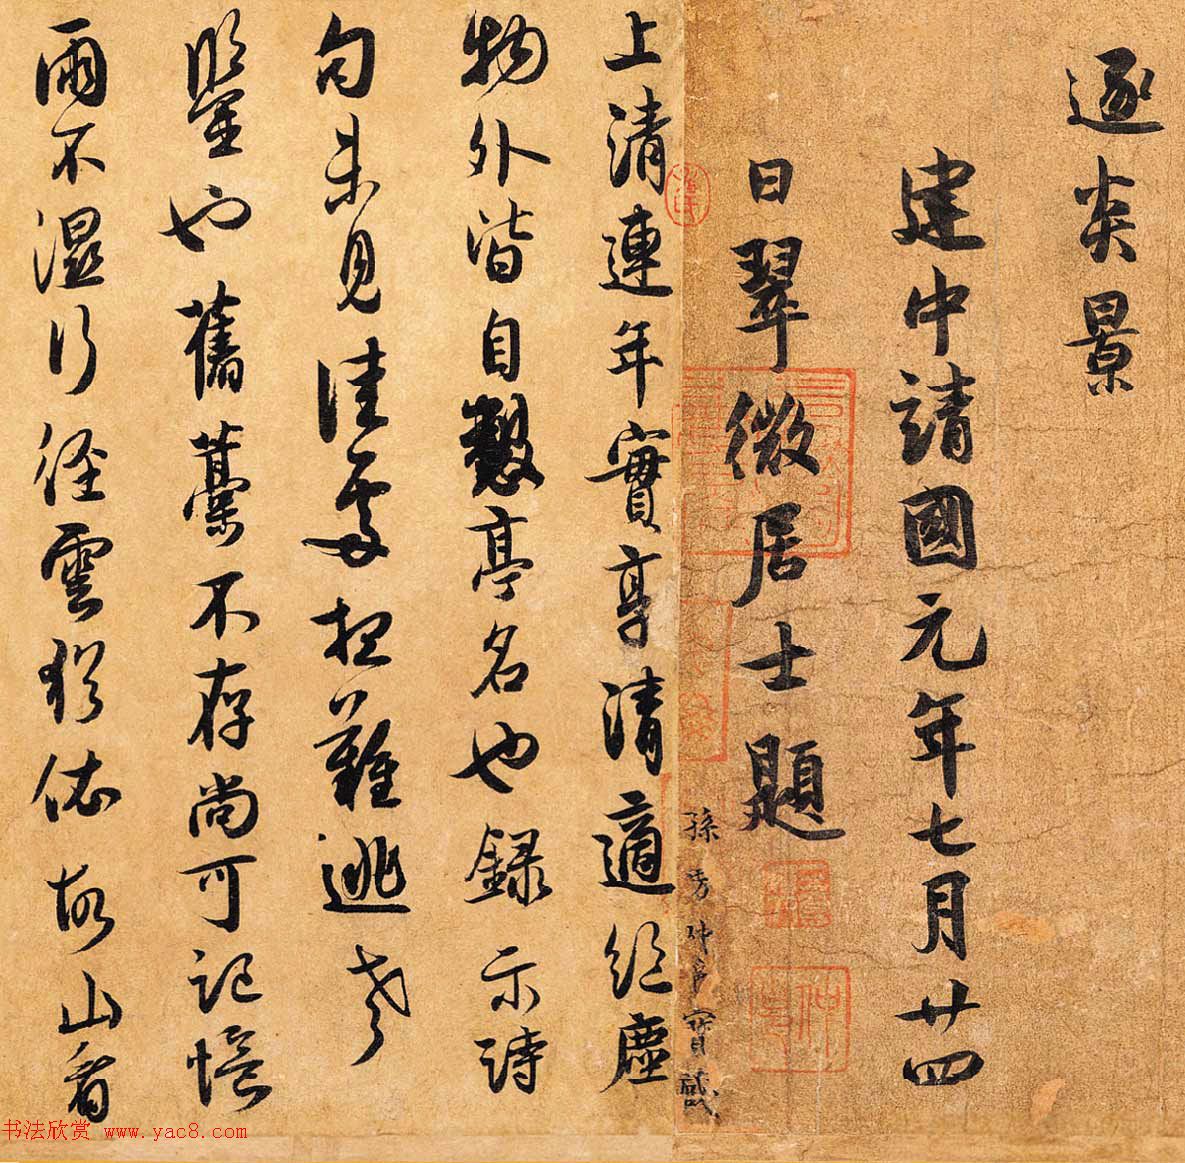 逐炎景
建中靖國元年七月廿四
日翠微居士題
孫 仲 寶藏
上清連年實享清適經塵
物外皆自繫亭名也錄示詩
句未見佳處抱難逃考
鑒也舊藁不存尚可記憶
雨不濕行徑雲猶依故山看
书法欣赏 www.yac8.com